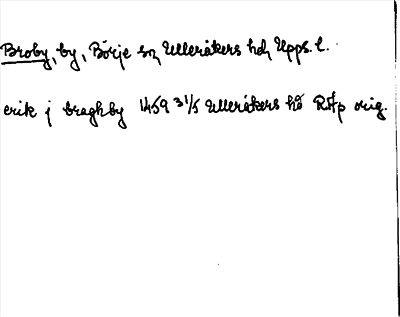 Broby, by, Börje sn, Ulleråkers hd, Upps. l.
erik j braghby 1459 31/5 Ulleråkers hd RAp orig.